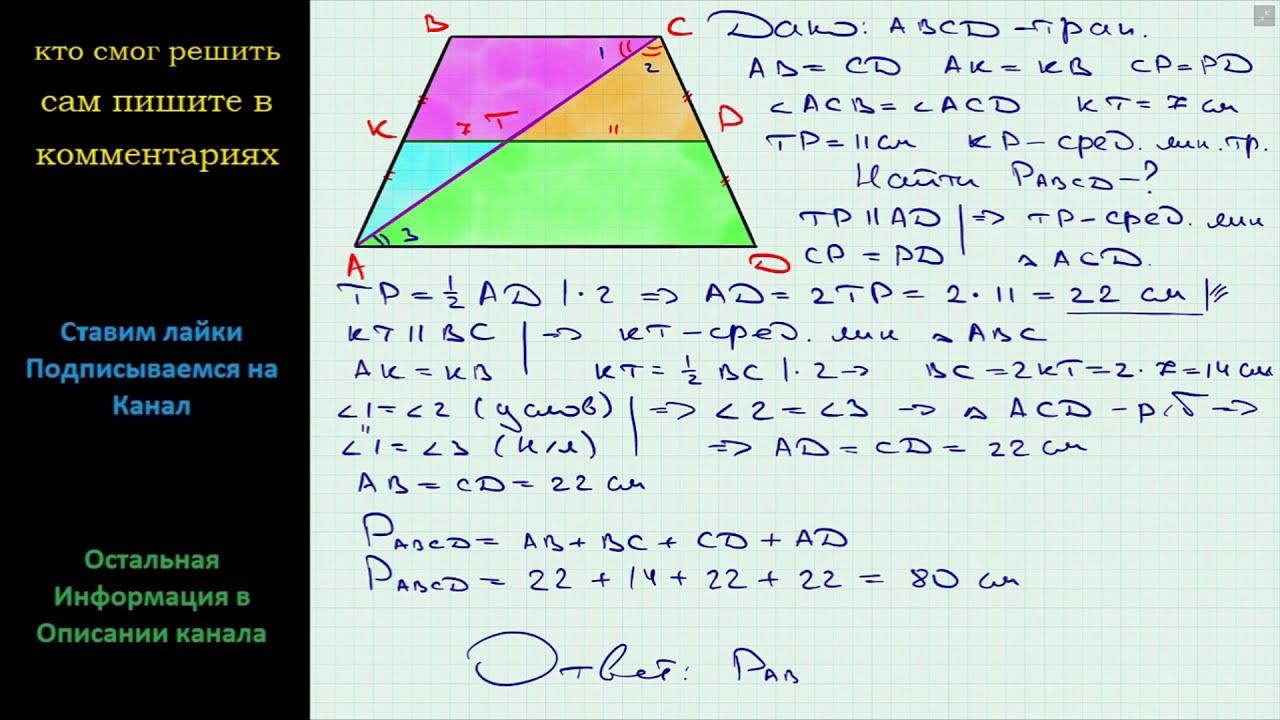 кто смог решить
сам пишите в
комментариях
Ставим лайки
Подписываемся на
Канал
Остальная
Информация в
Описании канала
B
C
1
2
K
7
T
11
P
3
A
D
Дано: ABCD – трап.
AB = CD AK = KB CP = PD
∠ACB = ∠ACD KT = 7 см
TP = 11 см KP – сред. лин. тр.
Найти P_ABCD – ?
TP || AD | => TP – сред. лин
CP = PD | △ACD.
TP = 1/2 AD | · 2 => AD = 2TP = 2 · 11 = 22 см
KT || BC | => KT – сред. лин △ABC
AK = KB | KT = 1/2 BC | · 2 → BC = 2KT = 2 · 7 = 14 см
∠1 = ∠2 (услов) | => ∠2 = ∠3 → △ACD – р/б =>
∠1 = ∠3 (н/л) | => AD = CD = 22 см
AB = CD = 22 см
P_ABCD = AB + BC + CD + AD
P_ABCD = 22 + 14 + 22 + 22 = 80 см
Ответ: P_AB